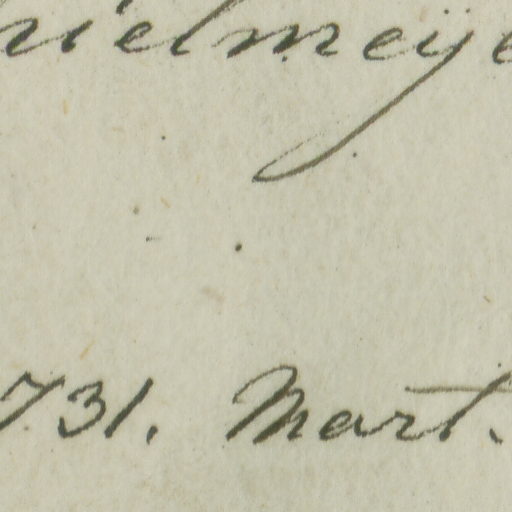 hielmeye
731. Mart.